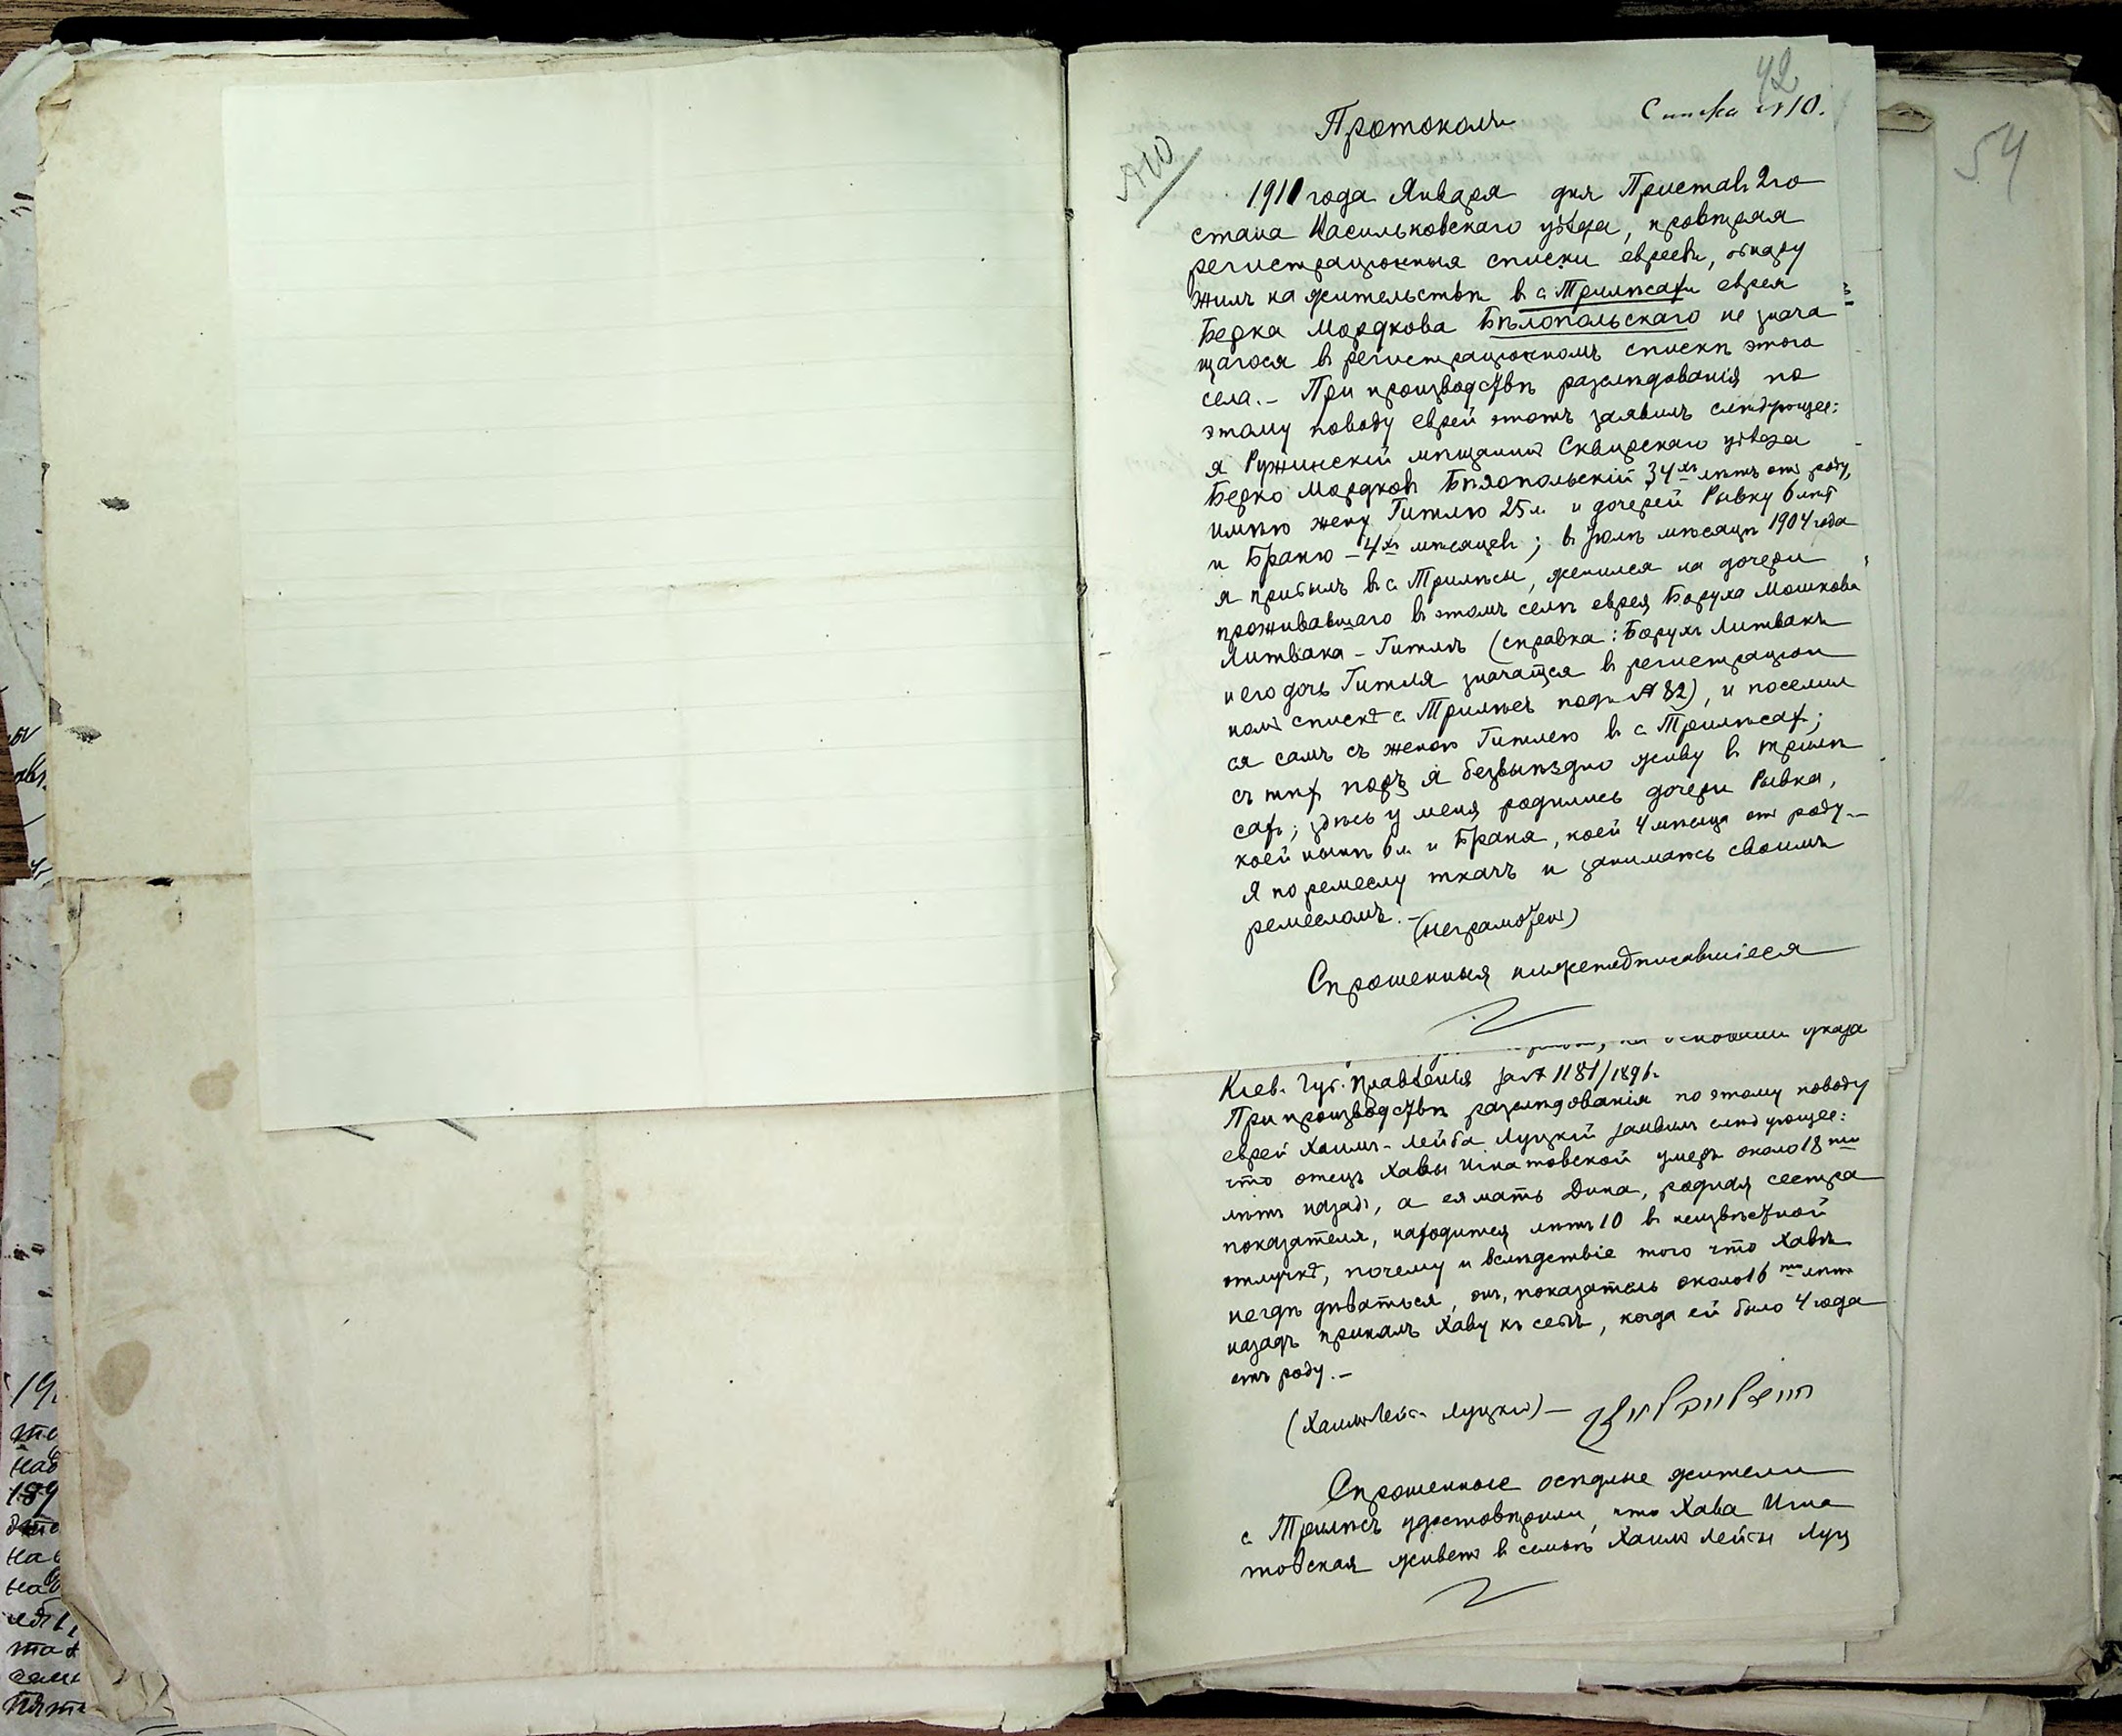 42
Списка №10.
Протоколъ
№10
1911 года Января дня Приставъ 2го
стана Васильковскаго уѣзда, провѣряя
регистраціонныя списки евреевъ, обнару
жилъ на жительствѣ в с Трилѣсахъ еврея
Берка Мордкова Бѣлопольскаго не знача
щагося в регистраціонномъ спискѣ этого
села.- При производствѣ разслѣдованія по
этому поводу еврей этотъ заявилъ слѣдующее:
я Ружинскій мѣщанинъ Сквирскаго уѣзда
Берко Мордковъ Бѣлопольскій 34хъ лѣтъ отъ роду,
имѣю жену Гитлю 25л. и дочерей Рывку 6лѣтъ
и Браню - 4хъ мѣсяцевъ; в Іюлѣ мѣсяцѣ 1904 года
я прибылъ в с Трилѣсы, женился на дочери
проживавшаго в этомъ селѣ еврея Боруха Мошкова
Литвака - Гитлѣ (справка: Борухъ Литвакъ
и его дочь Гитля значатся в регистраціон
номъ спискѣ с Трилѣсъ подъ №82), и поселил
ся самъ съ женою Гитлею в с Трилѣсахъ;
съ тѣхъ поръ я безвыѣздно живу в Трилѣ
сахъ; здѣсь у меня родились дочери Рывка,
коей нынѣ 6л. и Браня, коей 4 мѣсяца отъ роду.-
Я по ремеслу ткачъ и занимаюсь своимъ
ремесломъ. - (неграмотенъ)
Спрошенныя нижеподписавшіеся
основаніи указа
Кіев. Губ. Правленія за №1181/1891.
При производствѣ разслѣдованія по этому поводу
еврей Хаимъ-Лейба Луцкій заявилъ слѣдующее:
что отецъ Хавы Игнатовской умеръ около 18ти
лѣтъ назадъ, а ея мать Дина, родная сестра
показателя, находится лѣтъ 10 в неизвѣстной
отлучкѣ, почему и вслѣдствіе того что Хавѣ
негдѣ дѣваться, онъ, показатель около 16ти лѣтъ
назадъ принялъ Хаву къ себѣ, когда ей было 4 года
отъ роду.-
(Хаимъ Лейба Луцкій) -
Спрошенные осѣдлые жители
с Трилѣсъ удостовѣрили, что Хава Игна
товская живетъ в семьѣ Хаима Лейбы Луц
54